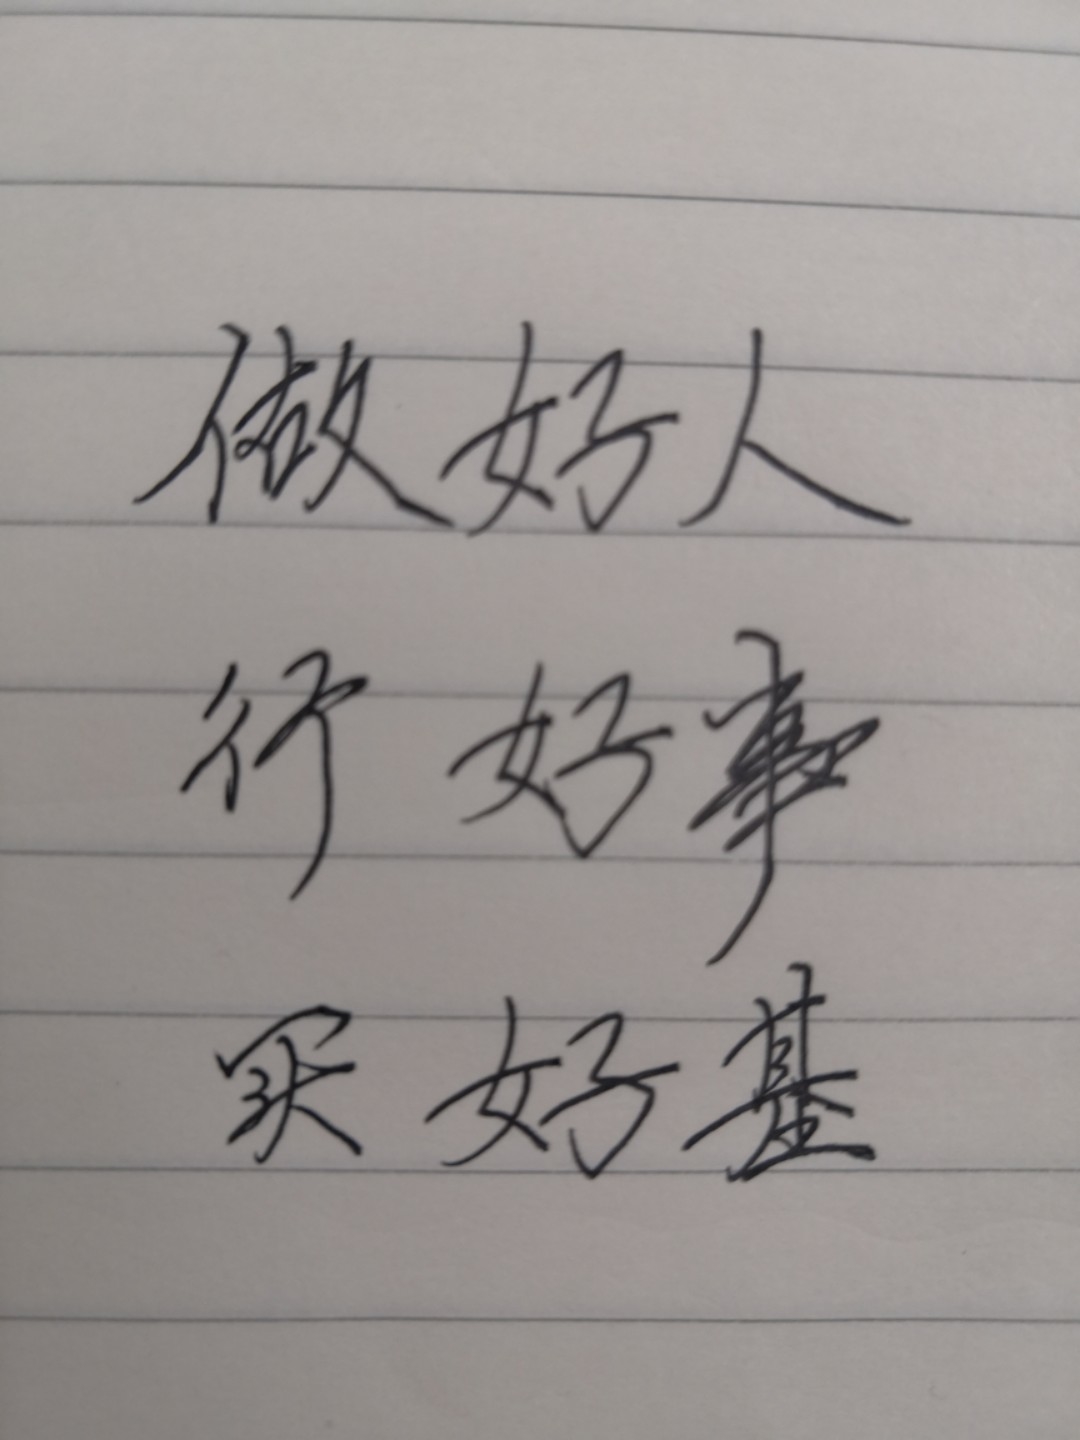 做好人
行好事
买好基